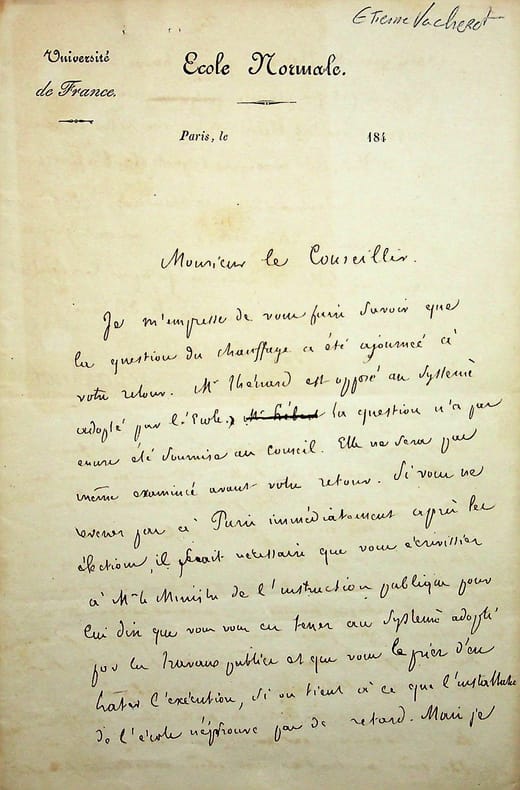 Etienne Vacherot
Université
de France.
Ecole Normale.
Paris, le 184
Monsieur le Conseiller.
Je m'empresse de vous faire savoir que
la question du chauffage a été ajournée à
votre retour. Mr Thénard est opposé au système
adopté par l'École, la question n'a pas
encore été soumise au conseil. Elle ne sera pas
même examinée avant votre retour. Si vous ne
venez pas à Paris immédiatement après les
élections, il serait nécessaire que vous écrivissiez
à Mr le Ministre de l'instruction publique pour
lui dire que vous vous en tenez au système adopté
par les travaux publics et que vous le priez d'en
hâter l'exécution, si on tient à ce que l'installation
de l'école n'éprouve pas de retard. Mais je